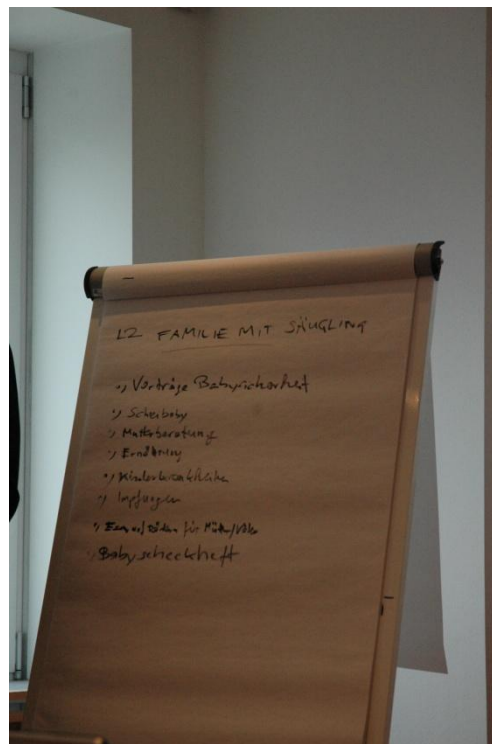 L2 FAMILIE MIT SÄUGLING
•) Vorträge Babysicherheit
•) Schreibaby
•) Mütterberatung
•) Ernährung
•) Kinderkrankheiten
•) Impfungen
•) für Mütter/Väter
•) Babyscheckheft